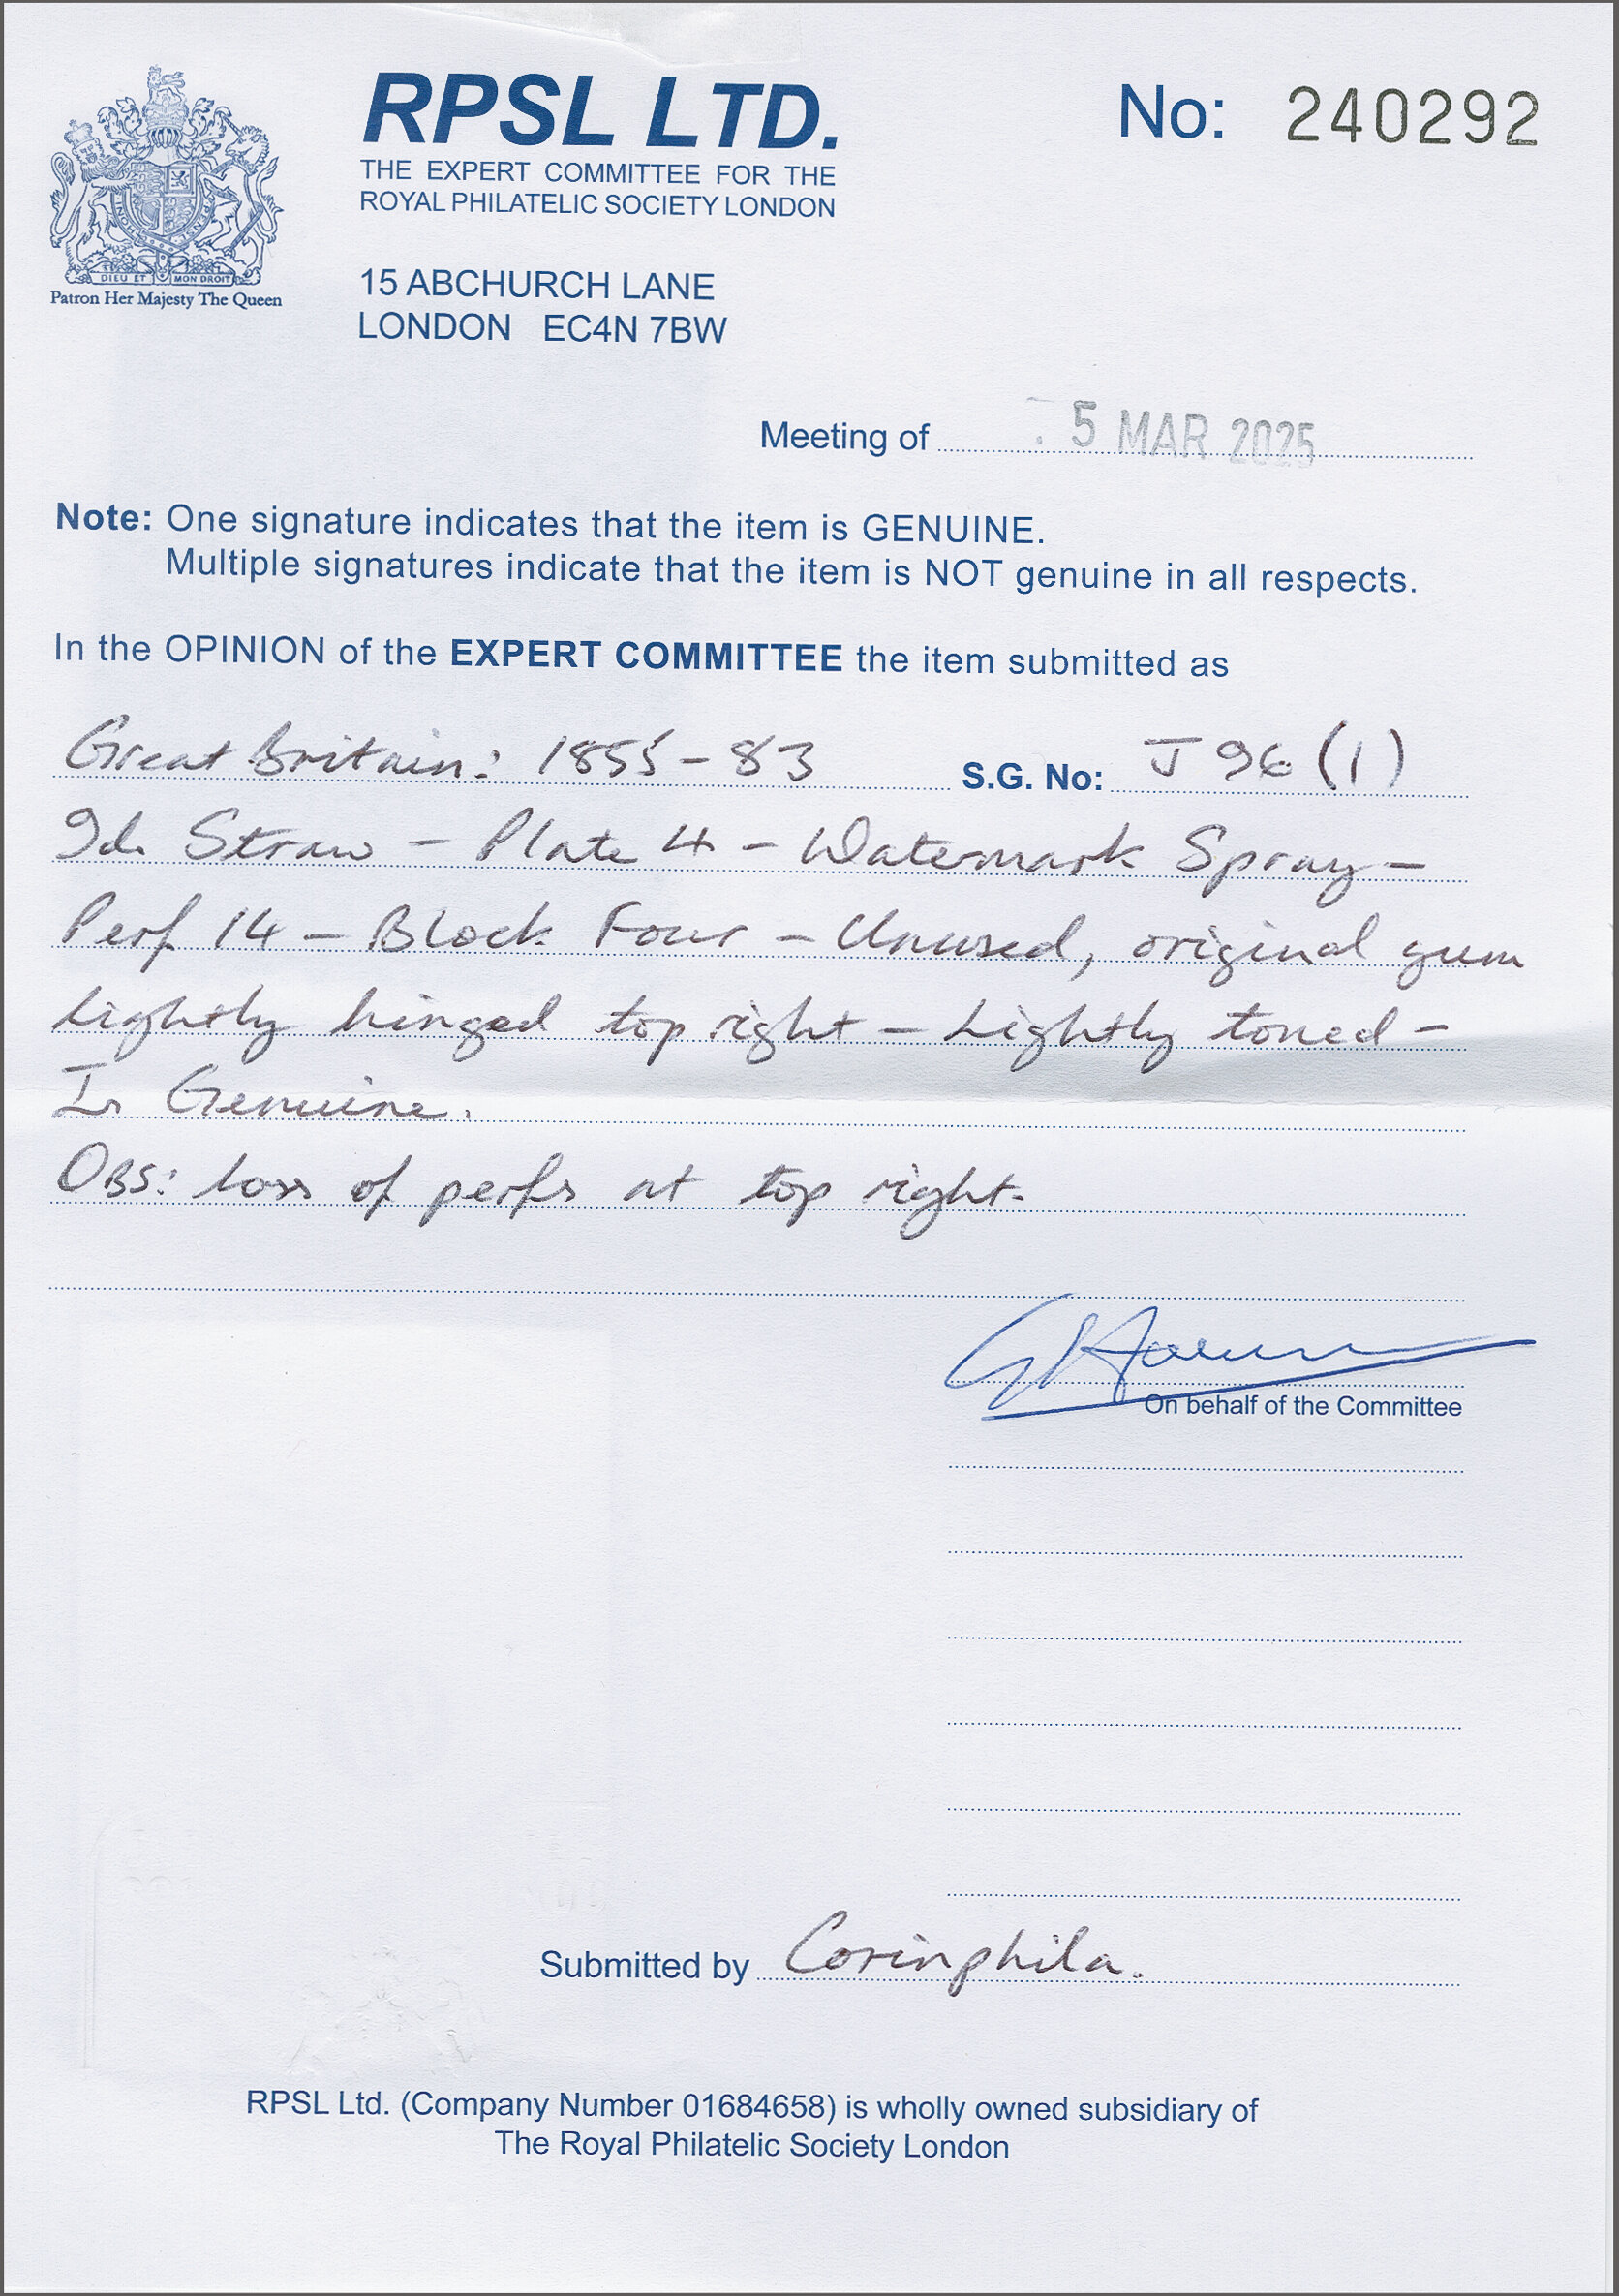 RPSL LTD.
THE EXPERT COMMITTEE FOR THE
ROYAL PHILATELIC SOCIETY LONDON
No: 240292
DIEU ET MON DROIT
Patron Her Majesty The Queen
15 ABCHURCH LANE
LONDON EC4N 7BW
Meeting of 5 MAR 2025
Note: One signature indicates that the item is GENUINE.
Multiple signatures indicate that the item is NOT genuine in all respects.
In the OPINION of the EXPERT COMMITTEE the item submitted as
Great Britain: 1855-83 S.G. No: J96 (1)
9d. Straw - Plate 4 - Watermark Spray -
Perf 14 - Block Four - Unused, original gum
Lightly hinged top right - Lightly toned -
Is Genuine.
OBS: loss of perfs at top right.
On behalf of the Committee
Submitted by Corinphila.
RPSL Ltd. (Company Number 01684658) is wholly owned subsidiary of
The Royal Philatelic Society London